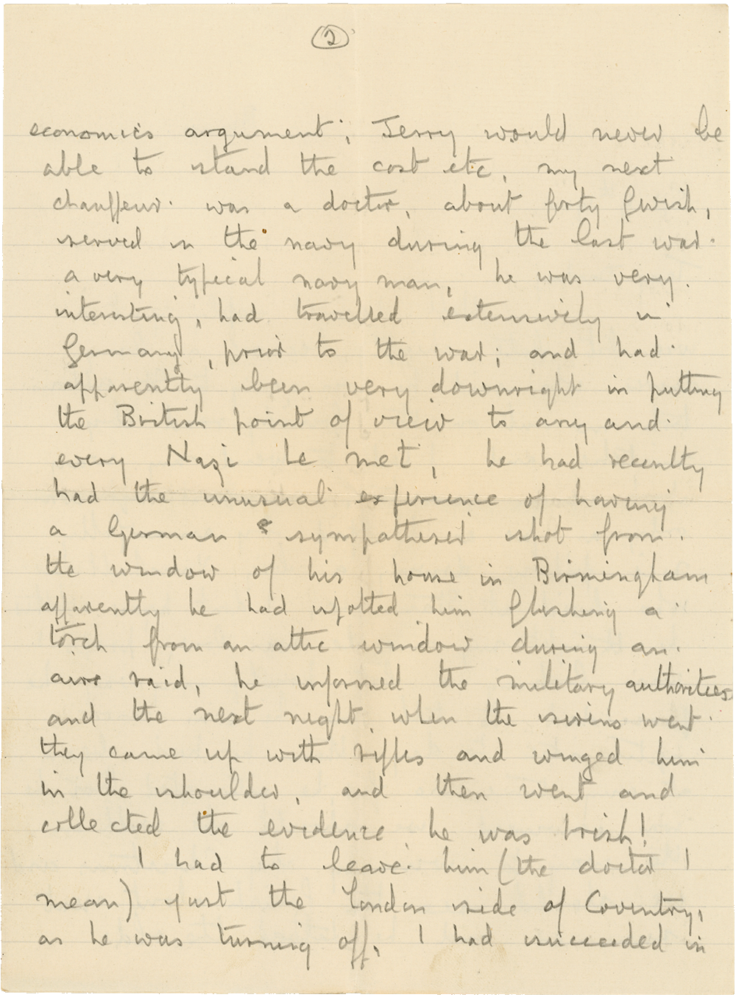 2
economics argument; Jerry would never be
able to stand the cost etc, my next
chauffeur was a doctor, about forty fivish,
served in the navy during the last war.
a very typical navy man, he was very
interesting, had travelled extensively in
Germany, prior to the war; and had
apparently been very downright in putting
the British point of view to any and
every Nazi he met, he had recently
had the unusual experience of having
a German sympatheser shot from
the window of his house in Birmingham
apparently he had spotted him flashing a
torch from an attic window during an
air raid, he informed the military authorities
and the next night when the sirens went
they came up with rifles and winged him
in the shoulder, and then went and
collected the evidence he was Irish!
I had to leave him (the doctor I
mean) just the London side of Coventry,
as he was turning off, I had succeeded in